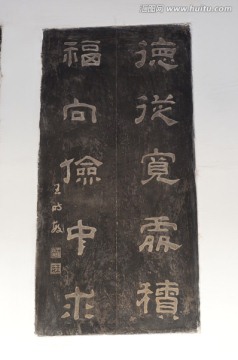 德從寬處積
福向儉中求
王時敏
www.huitu.com